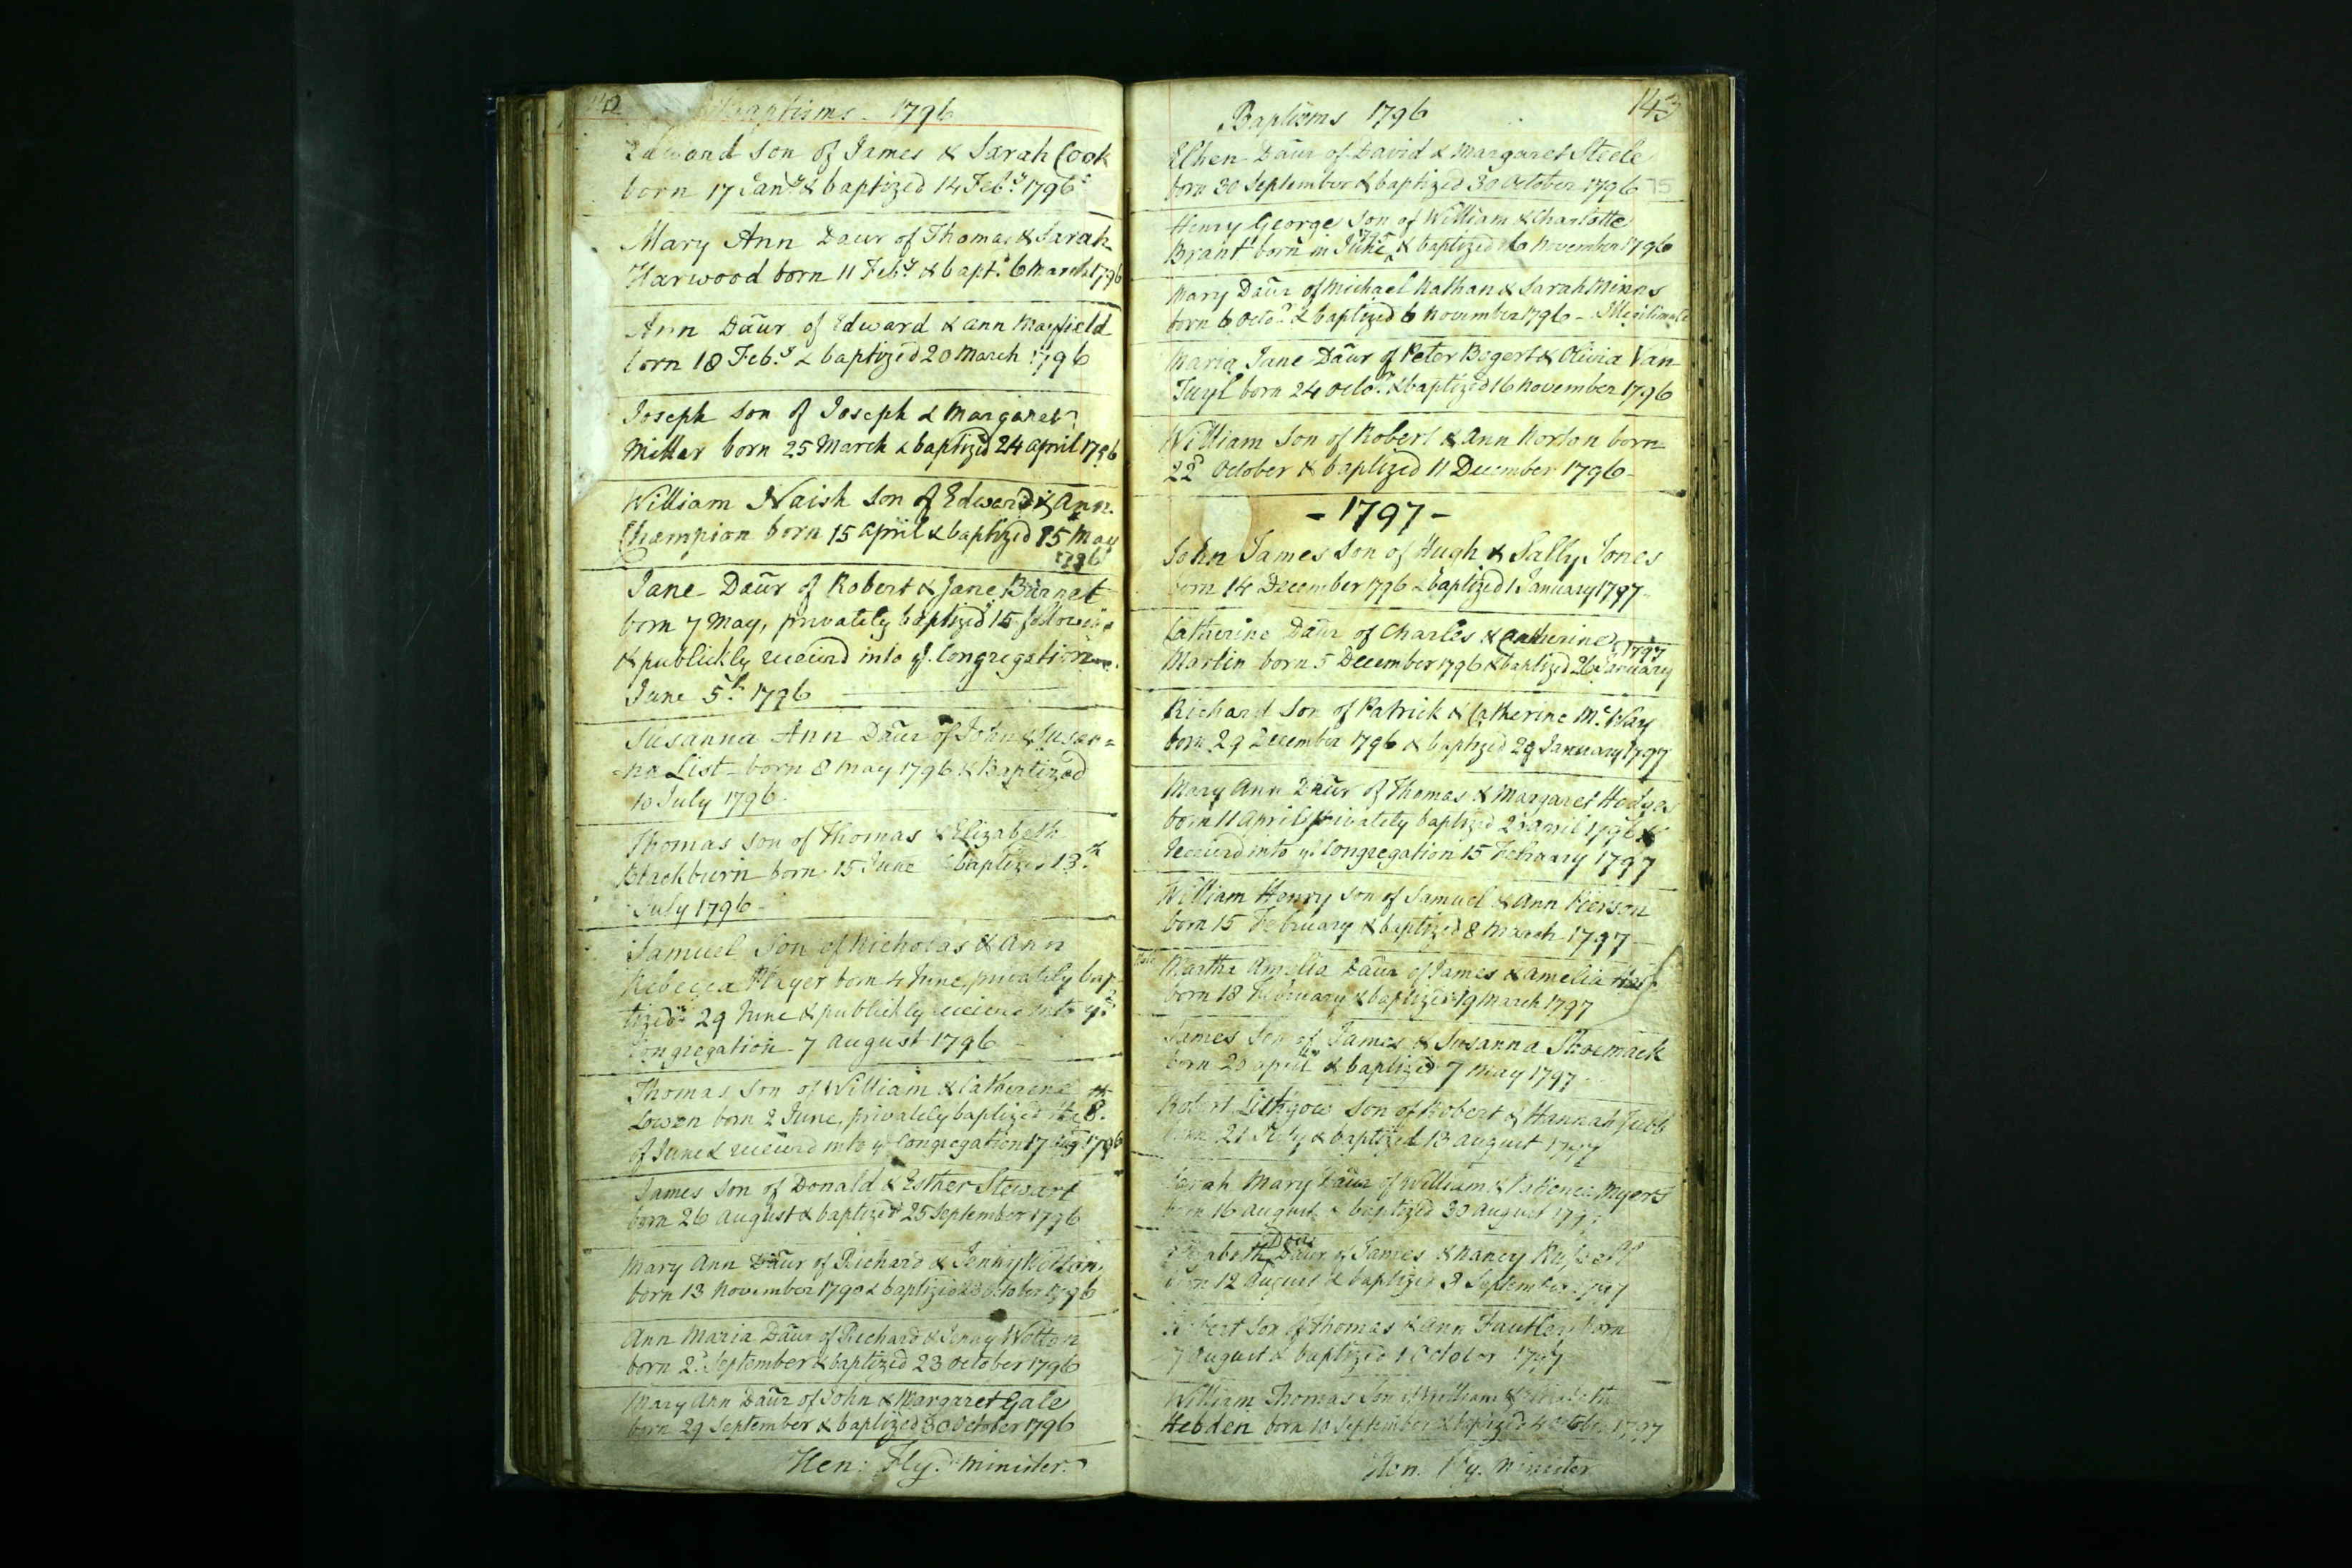 142 Baptisms - 1796
Edmond Son of James & Sarah Cook
born 17 Jany & baptized 14 Feby 1796
Mary Ann Daur of Thomas & Sarah
Harwood born 11 Feby & bapt. 6 March 1796
Ann Daur of Edward & Ann Mayfield
born 18 Feby & baptized 20 March 1796
Joseph Son of Joseph & Margaret
Millar born 25 March & baptized 24 April 1796
William Naish Son of Edward & Ann
Champion born 15 April & baptized 15 May
1796
Jane Daur of Robert & Jane Burnet
born 7 May, privately baptized 15 following
& publickly receivd into ye Congregation
June 5th 1796
Susanna Ann Daur of John & Susan=
=na List born 8 May 1796 & Baptized
10 July 1796
Thomas Son of Thomas & Elizabeth
Blackburn born 15 June & baptized 13th
July 1796
Samuel Son of Nicholas & Ann
Rebecca Mayer born 4 June, privately bap-
tized 29 June & publickly receivd into ye
Congregation 7 August 1796
Thomas Son of William & Catherine
Lowen born 2 June, privately baptized the 8th
of June & receivd into ye Congregation 17 Augt 1796
James Son of Donald & Esther Stewart
born 26 August & baptized 25 September 1796
Mary Ann Daur of Richard & Jenny Wotton
born 13 November 1790 & baptized 23 October 1796
Ann Maria Daur of Richard & Jenny Wotton
born 2d September & baptized 23 October 1796
Mary Ann Daur of John & Margaret Gale
born 29 September & baptized 30 October 1796
Hen: Fly. Minister
Baptisms 1796 143
Ellen Daur of David & Margaret Steele
born 30 September & baptized 30 October 1796 75
Henry George Son of William & Charlotte
Brant born in June 1795 & baptized 6 November 1796
Mary Daur of Michael Nathan & Sarah Minns
born 6 Octor & baptized 6 November 1796 - Illegitimate
Maria Jane Daur of Peter Bogert & Olivia Van-
Tuyl born 24 Octor & baptized 16 November 1796
William Son of Robert & Ann Norton born
22d October & baptized 11 December 1796 -
- 1797 -
John James Son of Hugh & Sally Jones
born 14 December 1796 & baptized 1 January 1797
Catherine Daur of Charles & Catherine
Martin born 5 December 1796 & baptized 26 January 1797
Richard Son of Patrick & Catherine Mc Way
born 29 December 1796 & baptized 29 January 1797
Mary Ann Daur of Thomas & Margaret Hodges
born 11 April privately baptized 23 April 1796 &
Receivd into ye Congregation 15 February 1797
William Henry Son of Samuel & Ann Pierson
born 15 February & baptized 8 March 1797
Martha Amelia Daur of James & Amelia
born 18 February & baptized 19 March 1797
James Son of James & Susanna Shoemack
born 20 April & baptized 7 May 1797
Robert Lithgow Son of Robert & Hannah Jubb
born 21 July & baptized 13 August 1797
Sarah Mary Daur of William & Patience Myers
born 16 August & baptized 30 August 1797
Elizabeth Daur of James & Nancy
born 12 August & baptized 3 September 1797
Robert Son of Thomas & Ann Fautley born
7 August & baptized 1 October 1797
William Thomas Son of William & Elizabeth
Hebden born 10 September & baptized 4 October 1797
Hen. Fly. Minister